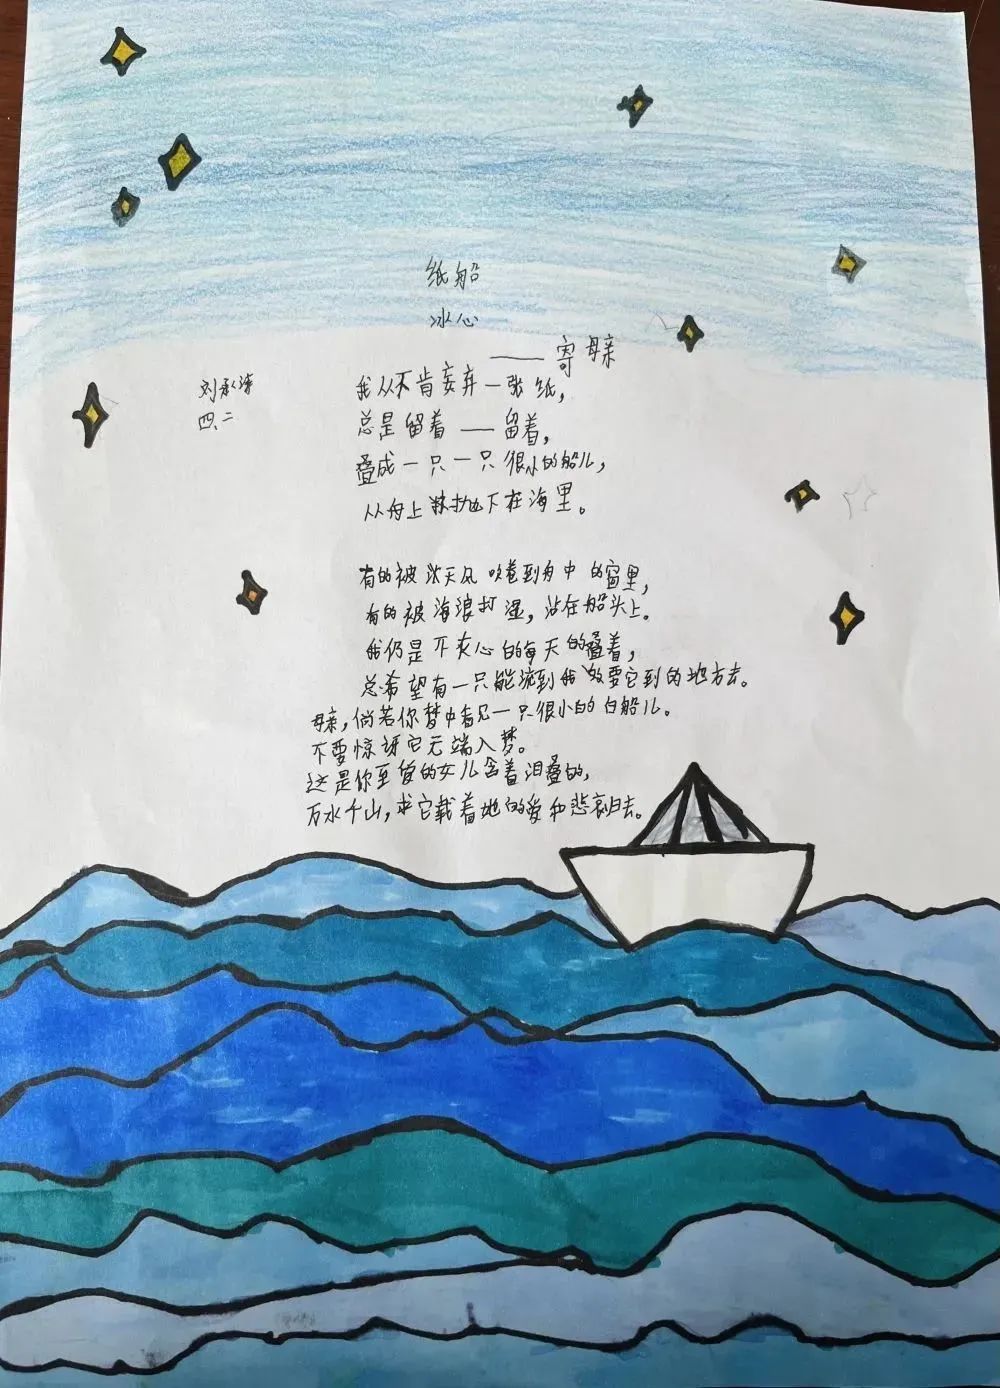 纸船
冰心
——寄母亲
刘承
四、二
我从不肯妄弃一张纸,
总是留着——留着,
叠成一只一只很小的船儿,
从舟上抛下在海里。
有的被天风吹卷到舟中的窗里,
有的被海浪打湿,沾在船头上。
我仍是不灰心的每天的叠着,
总希望有一只能流到我要它到的地方去。
母亲,倘若你梦中看见一只很小的白船儿。
不要惊讶它无端入梦。
这是你至爱的女儿含着泪叠的,
万水千山,求它载着她的爱和悲哀归去。